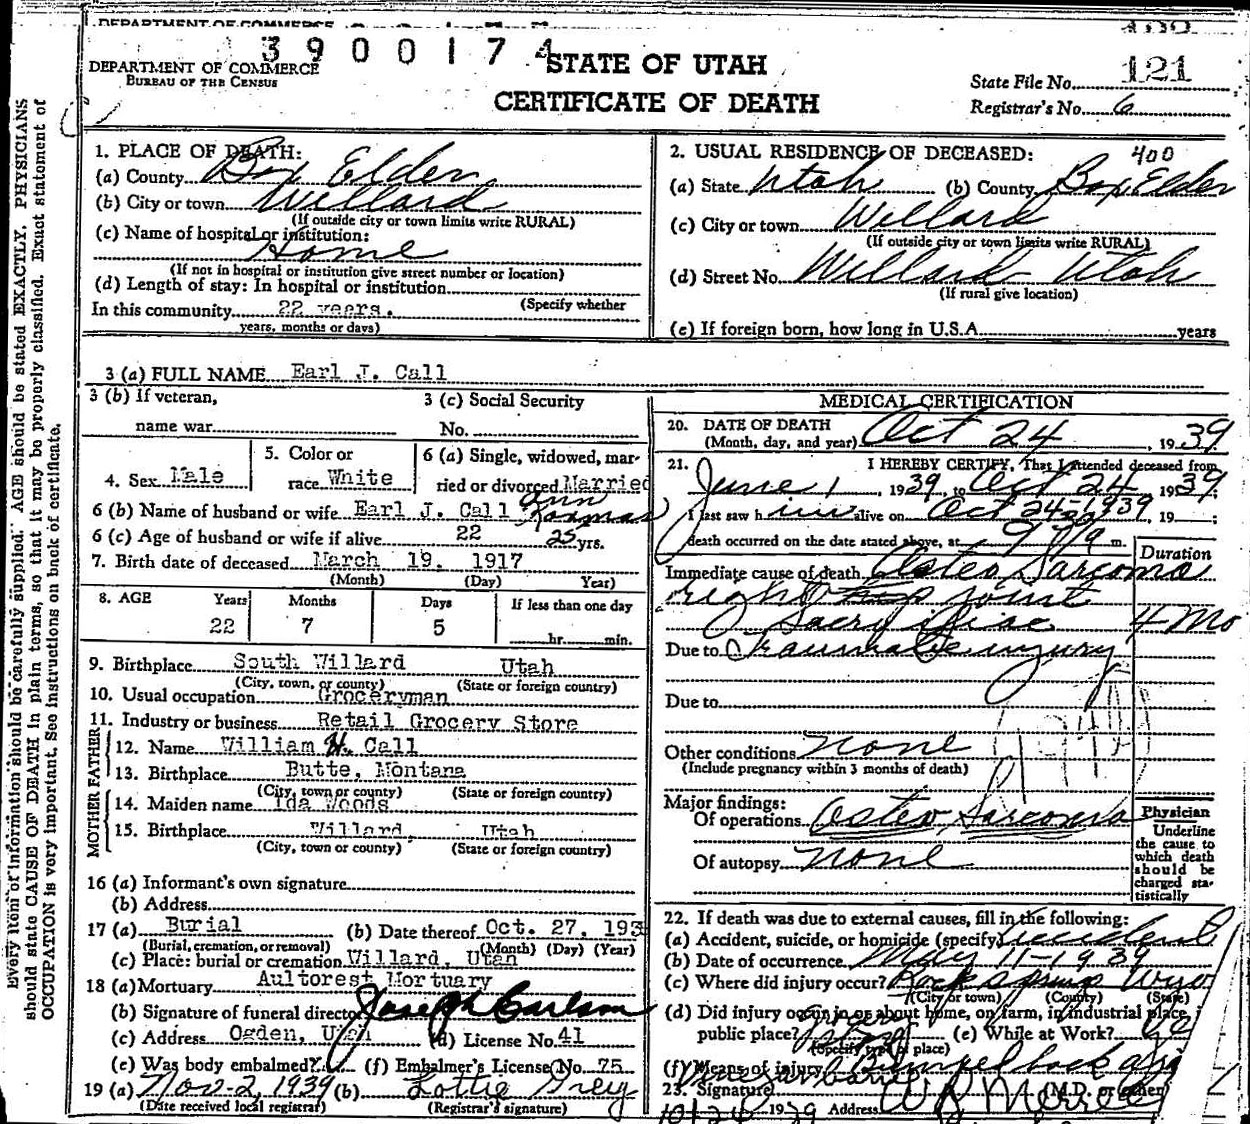 DEPARTMENT OF COMMERCE
3900174
DEPARTMENT OF COMMERCE
BUREAU OF THE CENSUS
STATE OF UTAH
CERTIFICATE OF DEATH
State File No. 121
Registrar's No. 6
Every item of information should be carefully supplied. AGE should be stated EXACTLY. PHYSICIANS
should state CAUSE OF DEATH in plain terms, so that it may be properly classified. Exact statement of
OCCUPATION is very important. See instructions on back of certificate.
1. PLACE OF DEATH:
(a) County Box Elder
(b) City or town Willard
(If outside city or town limits write RURAL)
(c) Name of hospital or institution:
Home
(If not in hospital or institution give street number or location)
(d) Length of stay: In hospital or institution
(Specify whether
In this community 22 years.
years, months or days)
2. USUAL RESIDENCE OF DECEASED: 400
(a) State Utah (b) County Box Elder
(c) City or town Willard
(If outside city or town limits write RURAL)
(d) Street No. Willard Utah
(If rural give location)
(e) If foreign born, how long in U.S.A. years
3 (a) FULL NAME Earl J. Call
3 (b) If veteran,
name war
3 (c) Social Security
No.
4. Sex Male
5. Color or
race White
6 (a) Single, widowed, mar-
ried or divorced Married
6 (b) Name of husband or wife Earl J. Call Ann
6 (c) Age of husband or wife if alive 22 25 yrs.
7. Birth date of deceased March 19, 1917
(Month) (Day) Year)
8. AGE Years Months Days If less than one day
22 7 5 hr. min.
9. Birthplace South Willard Utah
(City, town, or county) (State or foreign country)
10. Usual occupation Groceryman
11. Industry or business Retail Grocery Store
FATHER
12. Name William H. Call
13. Birthplace Butte, Montana
(City, town or county) (State or foreign country)
MOTHER
14. Maiden name Ida Woods
15. Birthplace Willard, Utah
(City, town or county) (State or foreign country)
16 (a) Informant's own signature
(b) Address
17 (a) Burial (b) Date thereof Oct. 27, 193
(Burial, cremation, or removal) (Month) (Day) (Year)
(c) Place: burial or cremation Willard, Utah
18 (a) Mortuary Aultorest Mortuary
(b) Signature of funeral director Joseph Carlson
(c) Address Ogden, Utah (d) License No. 41
(e) Was body embalmed? (f) Embalmer's License No. 75
19 (a) Nov-2, 1939 (b) Lottie Grey
(Date received local registrar) (Registrar's signature)
MEDICAL CERTIFICATION
20. DATE OF DEATH
(Month, day, and year) Oct 24, 1939
21. I HEREBY CERTIFY, That I attended deceased from
June 1, 1939, to Oct 24 1939;
I last saw him alive on Oct 24-1939, 19 ;
death occurred on the date stated above, at m.
Duration
Immediate cause of death Osteo Sarcoma
right joint
Sacry iliac 4 Mo
Due to Traumatic injury
Due to
Other conditions none
(Include pregnancy within 3 months of death)
Major findings:
Of operations Osteo Sarcoma
Of autopsy none
Physician
Underline
the cause to
which death
should be
charged sta-
tistically
22. If death was due to external causes, fill in the following:
(a) Accident, suicide, or homicide (specify) Accident
(b) Date of occurrence May 11-1939
(c) Where did injury occur? Rock Springs Wyo
(City or town) (County) (State)
(d) Did injury occur in or about home, on farm, in industrial place, i
public place? (e) While at Work?
(Specify type of place)
(f) Means of injury
23. Signature (M.D. or other)
10/24 1939 Address